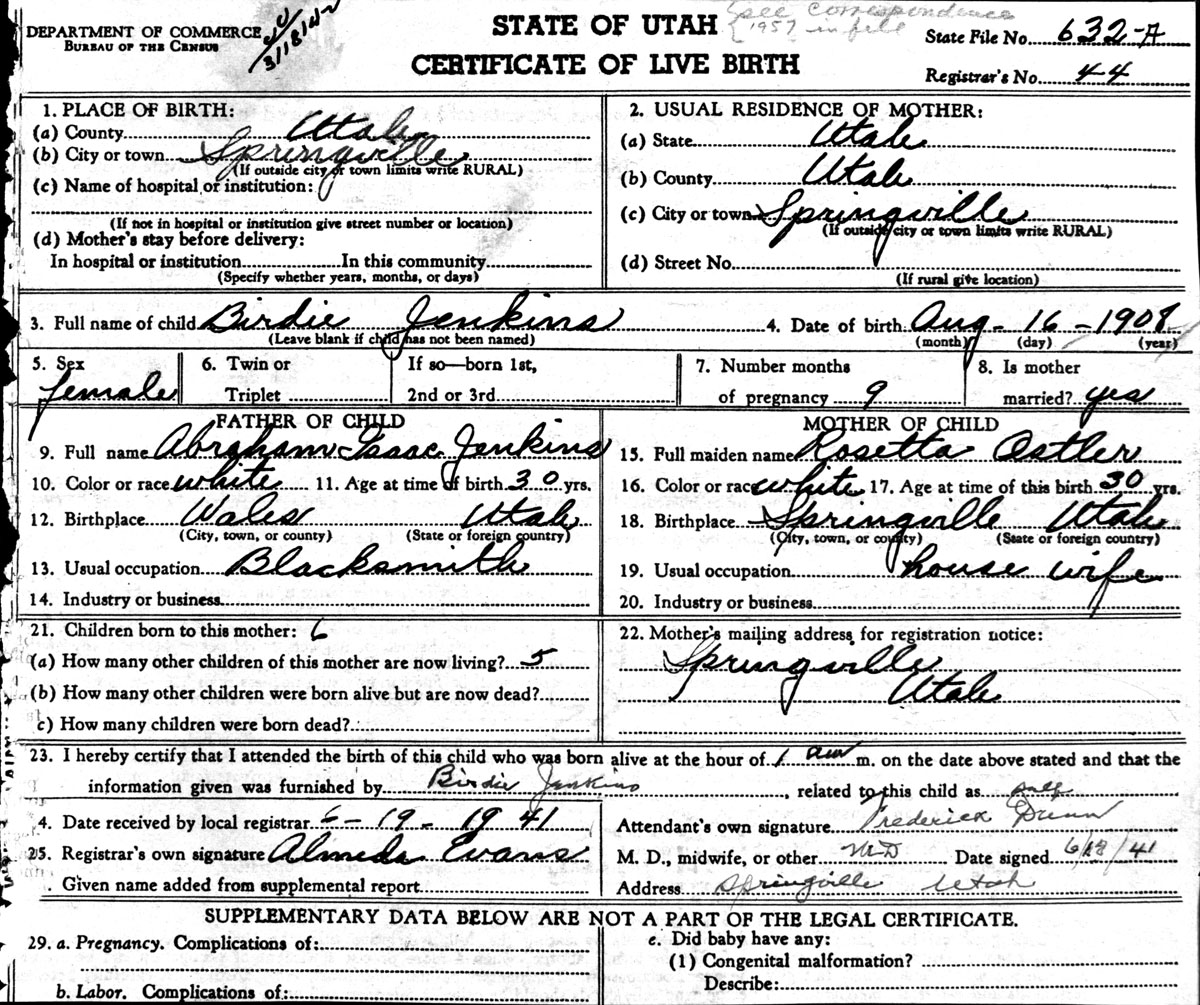 DEPARTMENT OF COMMERCE
BUREAU OF THE CENSUS
3/18/42
STATE OF UTAH
CERTIFICATE OF LIVE BIRTH
see correspondence
1957 in file
State File No. 632-A
Registrar's No. 44
1. PLACE OF BIRTH:
(a) County Utah
(b) City or town Springville
(If outside city or town limits write RURAL)
(c) Name of hospital or institution:
(If not in hospital or institution give street number or location)
(d) Mother's stay before delivery:
In hospital or institution In this community
(Specify whether years, months, or days)
2. USUAL RESIDENCE OF MOTHER:
(a) State Utah
(b) County Utah
(c) City or town Springville
(If outside city or town limits write RURAL)
(d) Street No.
(If rural give location)
3. Full name of child Birdie Jenkins 4. Date of birth Aug - 16 - 1908
(Leave blank if child has not been named) (month) (day) (year)
5. Sex female
6. Twin or Triplet
If so—born 1st, 2nd or 3rd
7. Number months of pregnancy 9
8. Is mother married? yes
FATHER OF CHILD
9. Full name Abraham Isaac Jenkins
10. Color or race white 11. Age at time of birth 30 yrs.
12. Birthplace Wales Utah
(City, town, or county) (State or foreign country)
13. Usual occupation Blacksmith
14. Industry or business
MOTHER OF CHILD
15. Full maiden name Rosetta Ostler
16. Color or race white 17. Age at time of this birth 30 yrs.
18. Birthplace Springville Utah
(City, town, or county) (State or foreign country)
19. Usual occupation house wife
20. Industry or business
21. Children born to this mother: 6
(a) How many other children of this mother are now living? 5
(b) How many other children were born alive but are now dead?
c) How many children were born dead?
22. Mother's mailing address for registration notice:
Springville
Utah
23. I hereby certify that I attended the birth of this child who was born alive at the hour of 1 am m. on the date above stated and that the
information given was furnished by Birdie Jenkins, related to this child as self
4. Date received by local registrar 6 - 19 - 1941
25. Registrar's own signature Almeda Evans
. Given name added from supplemental report
Attendant's own signature Frederick Dunn
M. D., midwife, or other MD Date signed 6/18/41
Address Springville Utah
SUPPLEMENTARY DATA BELOW ARE NOT A PART OF THE LEGAL CERTIFICATE.
29. a. Pregnancy. Complications of:
b. Labor. Complications of:
e. Did baby have any:
(1) Congenital malformation?
Describe: